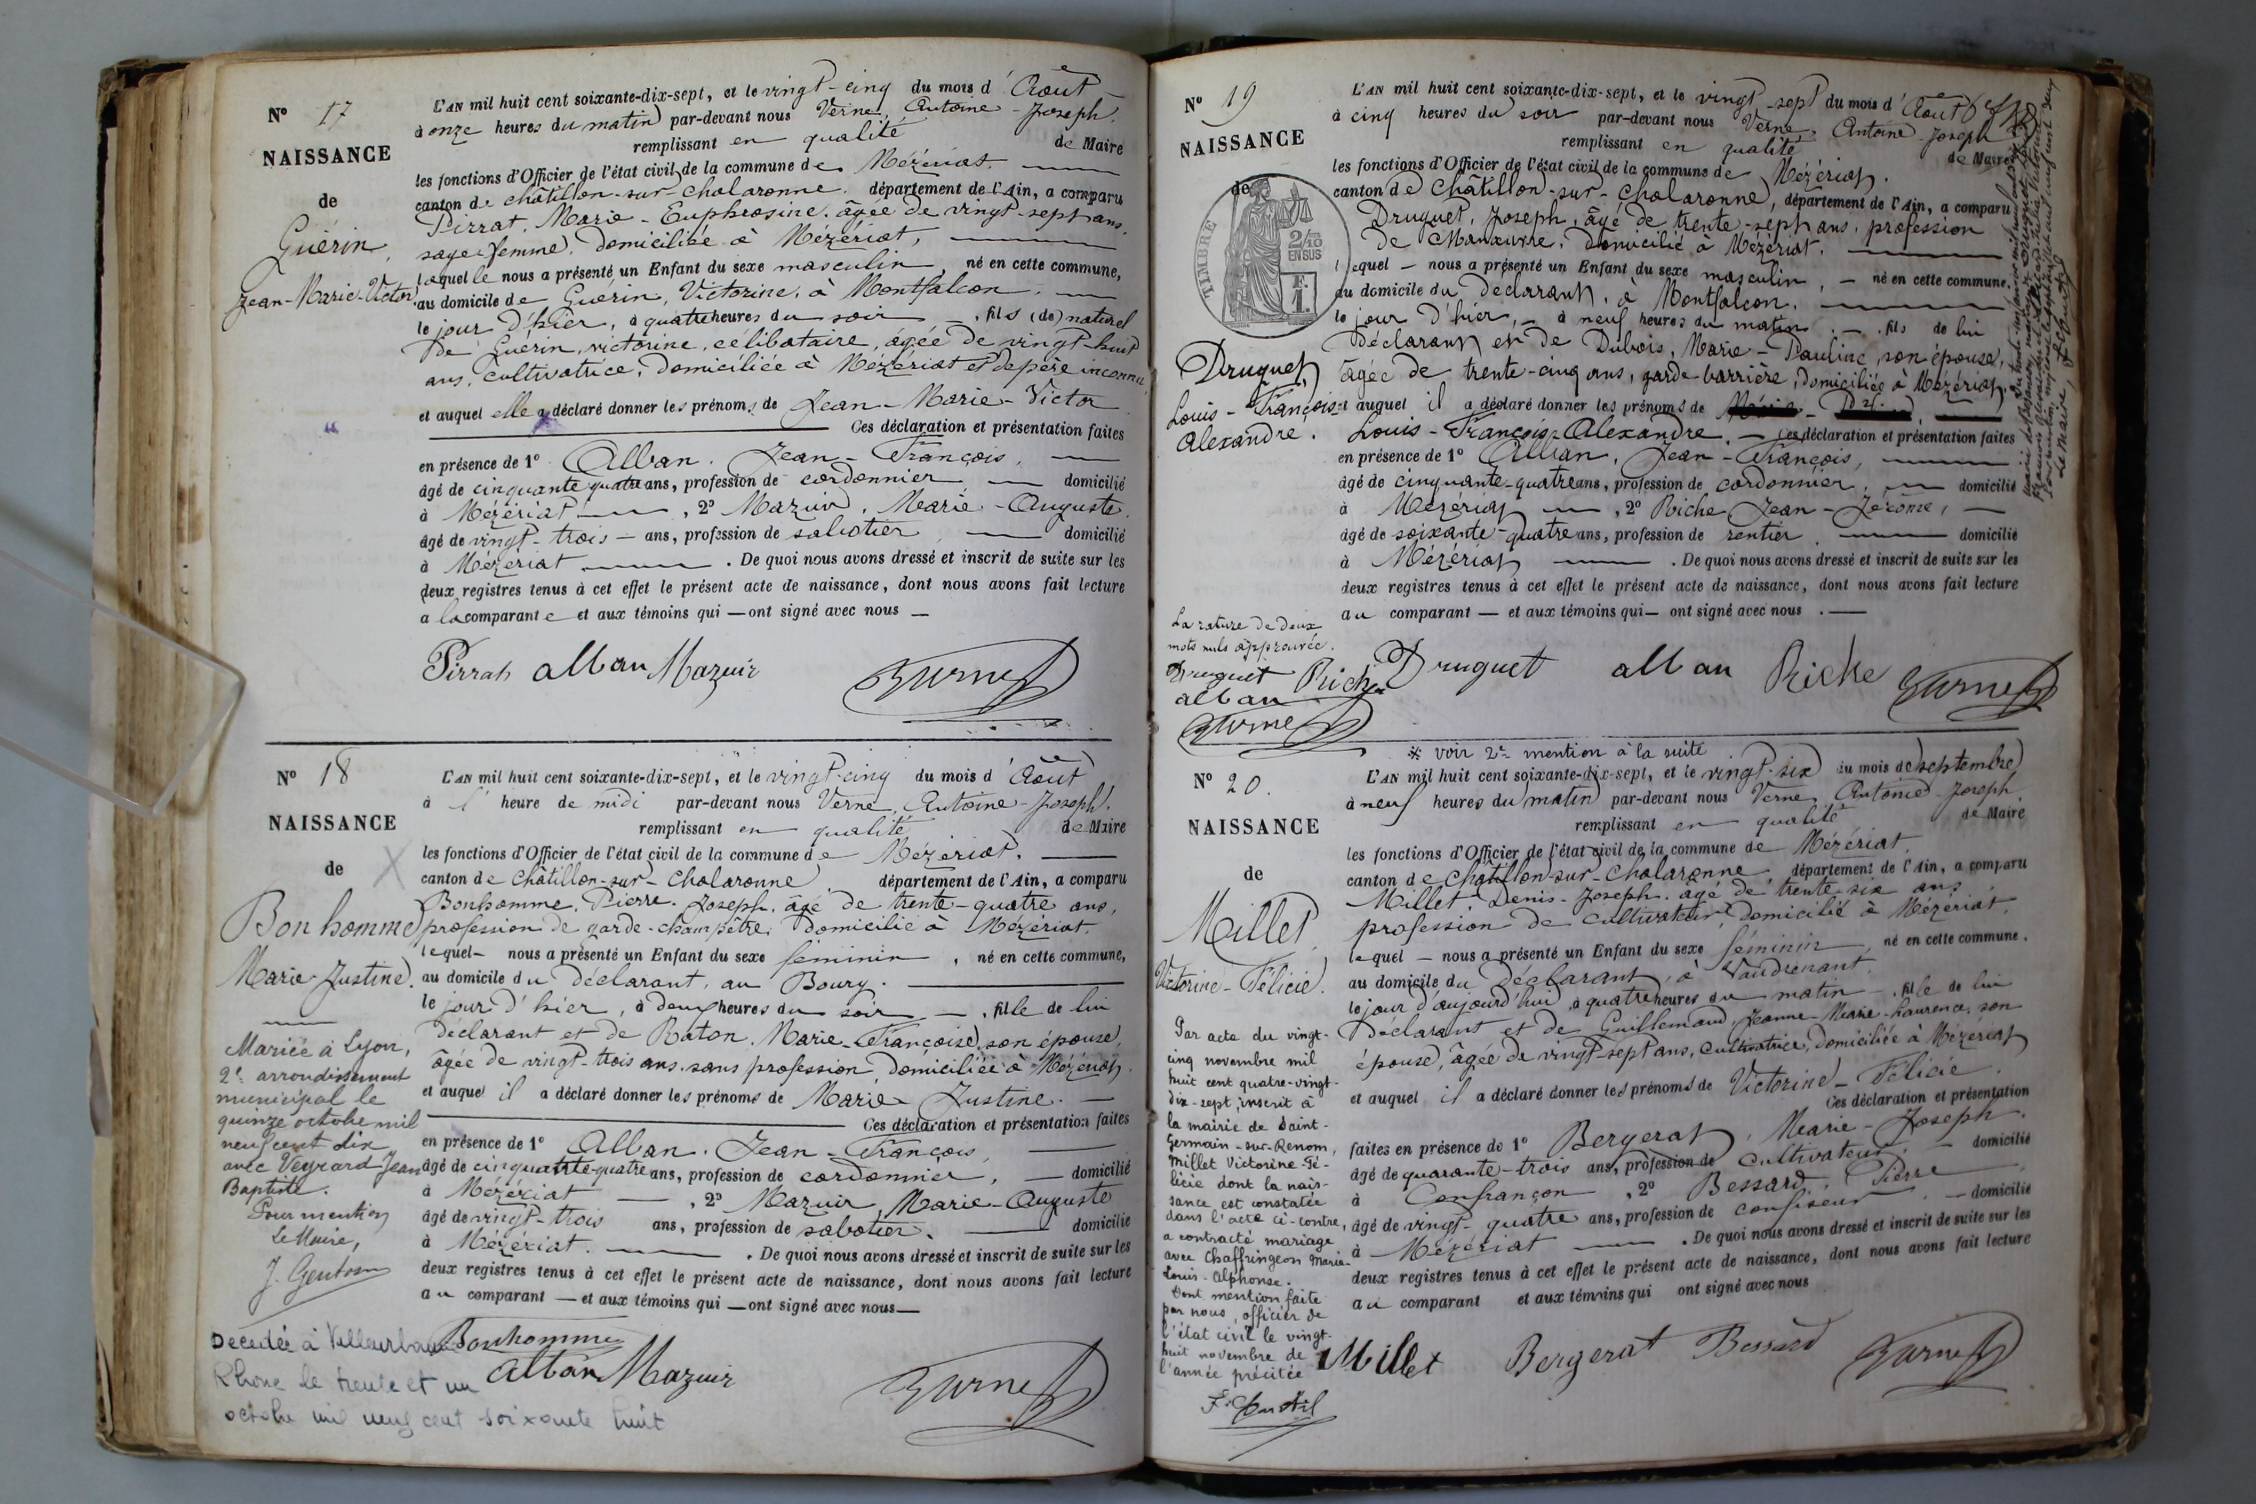 Nº 17
NAISSANCE
de
Guérin,
Jean-Marie-Victor
L'AN mil huit cent soixante-dix-sept, et le vingt-cinq du mois d'Août
à onze heures du matin par-devant nous Verne, Antoine-Joseph,
remplissant en qualité de Maire
les fonctions d'Officier de l'état civil de la commune de Mézériat.
canton de châtillon-sur-chalaronne. département de l'Ain, a comparu
Pirrat, Marie-Euphrosine, âgée de vingt-sept ans,
sage femme, domiciliée à Mézériat,
laquelle nous a présenté un Enfant du sexe masculin, né en cette commune,
au domicile de Guérin, Victorine, à Montfalcon.
le jour d'hier, à quatre heures du soir, fils (de) naturel
de Guérin, victorine, célibataire, âgée de vingt-huit
ans, cultivatrice, domiciliée à Mézériat et de père inconnu
et auquel elle a déclaré donner les prénoms de Jean-Marie-Victor
Ces déclaration et présentation faites
en présence de 1º Alban, Jean-François,
âgé de cinquante quatre ans, profession de cordonnier, domicilié
à Mézériat, 2º Mazuir, Marie-Auguste,
âgé de vingt-trois ans, profession de sabotier, domicilié
à Mézériat. De quoi nous avons dressé et inscrit de suite sur les
deux registres tenus à cet effet le présent acte de naissance, dont nous avons fait lecture
a la comparante et aux témoins qui ont signé avec nous
Pirrat alban Mazuir Verne
Nº 18
NAISSANCE
de
Bonhomme
Marie-Justine.
Mariée à Lyon,
2e arrondissement
municipal le
quinze octobre mil
neuf cent dix
avec Veyrard Jean
Baptiste.
Pour mention
Le Maire,
Decedée à Villeurbanne
Rhône le trente et un
octobre mil neuf cent soixante huit
L'AN mil huit cent soixante-dix-sept, et le vingt-cinq du mois d'Août
à l'heure de midi par-devant nous Verne, Antoine-Joseph,
remplissant en qualité de Maire
les fonctions d'Officier de l'état civil de la commune de Mézériat.
canton de châtillon-sur-chalaronne département de l'Ain, a comparu
Bonhomme, Pierre-Joseph, âgé de trente-quatre ans,
profession de garde-champêtre, domicilié à Mézériat
lequel nous a présenté un Enfant du sexe féminin, né en cette commune,
au domicile du déclarant, au Bourg.
le jour d'hier, à deux heures du soir, fille de lui
déclarant et de Raton, Marie-Françoise, son épouse,
âgée de vingt-trois ans, sans profession, domiciliée à Mézériat
et auquel il a déclaré donner les prénoms de Marie Justine.
Ces déclaration et présentation faites
en présence de 1º Alban, Jean-François,
âgé de cinquante-quatre ans, profession de cordonnier, domicilié
à Mézériat, 2º Mazuir, Marie-Auguste
âgé de vingt-trois ans, profession de sabotier. domicilié
à Mézériat. De quoi nous avons dressé et inscrit de suite sur les
deux registres tenus à cet effet le présent acte de naissance, dont nous avons fait lecture
au comparant et aux témoins qui ont signé avec nous
Bonhomme
alban Mazuir Verne
Nº 19
NAISSANCE
de
TIMBRE
2/10
EN SUS
Druguet
Louis-François-
Alexandre.
L'AN mil huit cent soixante-dix-sept, et le vingt-sept du mois d'Août
à cinq heures du soir par-devant nous Verne, Antoine-Joseph
remplissant en qualité de Maire
les fonctions d'Officier de l'état civil de la commune de Mézériat.
canton de Châtillon-sur-chalaronne, département de l'Ain, a comparu
Druguet, Joseph, âgé de trente-sept ans, profession
de Manœuvre, domicilié à Mézériat.
lequel nous a présenté un Enfant du sexe masculin, né en cette commune,
au domicile du déclarant, à Montfalcon.
le jour d'hier, à neuf heures du matin, fils de lui
déclarant et de Dubois, Marie-Pauline, son épouse,
âgée de trente-cinq ans, garde barrière, domiciliée à Mézériat,
et auquel il a déclaré donner les prénoms de
Louis-François-Alexandre. Ces déclaration et présentation faites
en présence de 1º Alban, Jean-François,
âgé de cinquante-quatre ans, profession de cordonnier, domicilié
à Mézériat, 2º Riche Jean-Jérôme,
âgé de soixante-quatre ans, profession de rentier. domicilié
à Mézériat. De quoi nous avons dressé et inscrit de suite sur les
deux registres tenus à cet effet le présent acte de naissance, dont nous avons fait lecture
au comparant et aux témoins qui ont signé avec nous.
La rature de deux
mots nuls approuvée.
Druguet Riche
alban
Verne
Druguet alban Riche Verne
* voir 2e mention à la suite
Nº 20.
NAISSANCE
de
Millet,
Victorine-Félicie.
Par acte du vingt-
cinq novembre mil
huit cent quatre-vingt-
dix-sept, inscrit à
la mairie de Saint-
Germain-sur-Renom,
Millet Victorine-Fé-
licie dont la nais-
sance est constatée
dans l'acte ci-contre,
a contracté mariage
avec Chaffringeon Marie-
Louis-Alphonse.
Dont mention faite
par nous, officier de
l'état civil le vingt-
huit novembre de
l'année précitée
L'AN mil huit cent soixante-dix-sept, et le vingt-six du mois de septembre
à neuf heures du matin par-devant nous Verne, Antoine-Joseph,
remplissant en qualité de Maire
les fonctions d'Officier de l'état civil de la commune de Mézériat.
canton de châtillon-sur-chalaronne département de l'Ain, a comparu
Millet, Denis-Joseph, âgé de trente-six ans
profession de cultivateur, domicilié à Mézériat,
lequel nous a présenté un Enfant du sexe féminin, né en cette commune.
au domicile du déclarant, à Vaudrenant
le jour d'aujourd'hui à quatre heures du matin, fille de lui
Déclarant et de Guillemaud, Jeanne-Marie-Laurence, son
épouse, âgée de vingt-sept ans, cultivatrice, domiciliée à Mézériat
et auquel il a déclaré donner les prénoms de Victorine-Félicie.
Ces déclaration et présentation
faites en présence de 1º Bergerat, Marie-Joseph.
âgé de quarante-trois ans, profession de cultivateur, domicilié
à Confrançon, 2º Bessard, Pierre
âgé de vingt-quatre ans, profession de confiseur, domicilié
à Mézériat. De quoi nous avons dressé et inscrit de suite sur les
deux registres tenus à cet effet le présent acte de naissance, dont nous avons fait lecture
au comparant et aux témoins qui ont signé avec nous
Millet Bergerat Bessard Verne